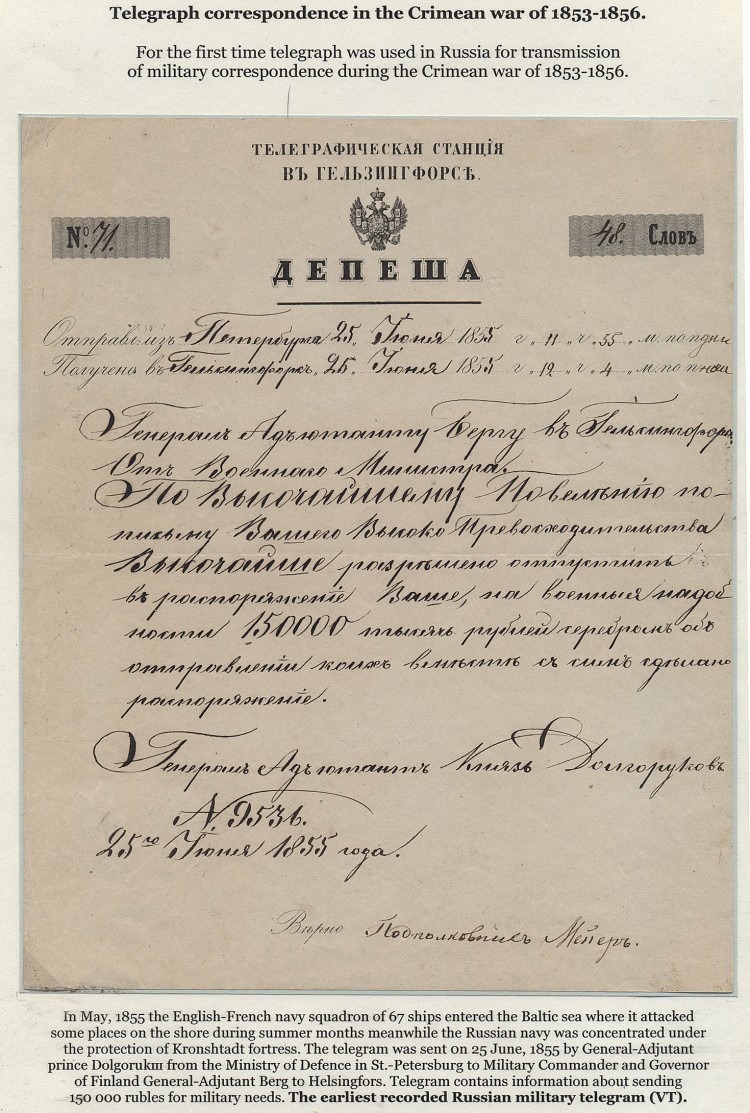 Telegraph correspondence in the Crimean war of 1853-1856.
For the first time telegraph was used in Russia for transmission
of military correspondence during the Crimean war of 1853-1856.
ТЕЛЕГРАФИЧЕСКАЯ СТАНЦІЯ
ВЪ ГЕЛЬЗИНГФОРСѢ.
№. 71.
48. Словъ
ДЕПЕША
Отправ. изъ Петербурга 25 „ Іюня 1855 г „ 11 „ ч „ 55 „ м. по пдни
Получена въ Гельсингфорсъ „ 25 „ Іюня 1855 г „ 12 „ ч „ 4 „ м. по
Генералъ Адъютанту Бергу въ Гельсингфорсъ
Отъ Военнаго Министра.
По Высочайшему Повелѣнію по-
письму Вашего Высоко Превосходительства
Высочайше разрѣшено отпустить
въ распоряженіе Ваше, на военныя надоб
ности 150000 тысячъ рублей серебромъ объ
отправленіи коихъ вмѣстѣ съ симъ сдѣлано
распоряженіе.
Генералъ Адъютантъ Князь Долгоруковъ
№ 9536.
25го Іюня 1855 года.
Вѣрно Подполковникъ Мейеръ.
In May, 1855 the English-French navy squadron of 67 ships entered the Baltic sea where it attacked
some places on the shore during summer months meanwhile the Russian navy was concentrated under
the protection of Kronshtadt fortress. The telegram was sent on 25 June, 1855 by General-Adjutant
prince Dolgorukш from the Ministry of Defence in St.-Petersburg to Military Commander and Governor
of Finland General-Adjutant Berg to Helsingfors. Telegram contains information about sending
150 000 rubles for military needs. The earliest recorded Russian military telegram (VT).